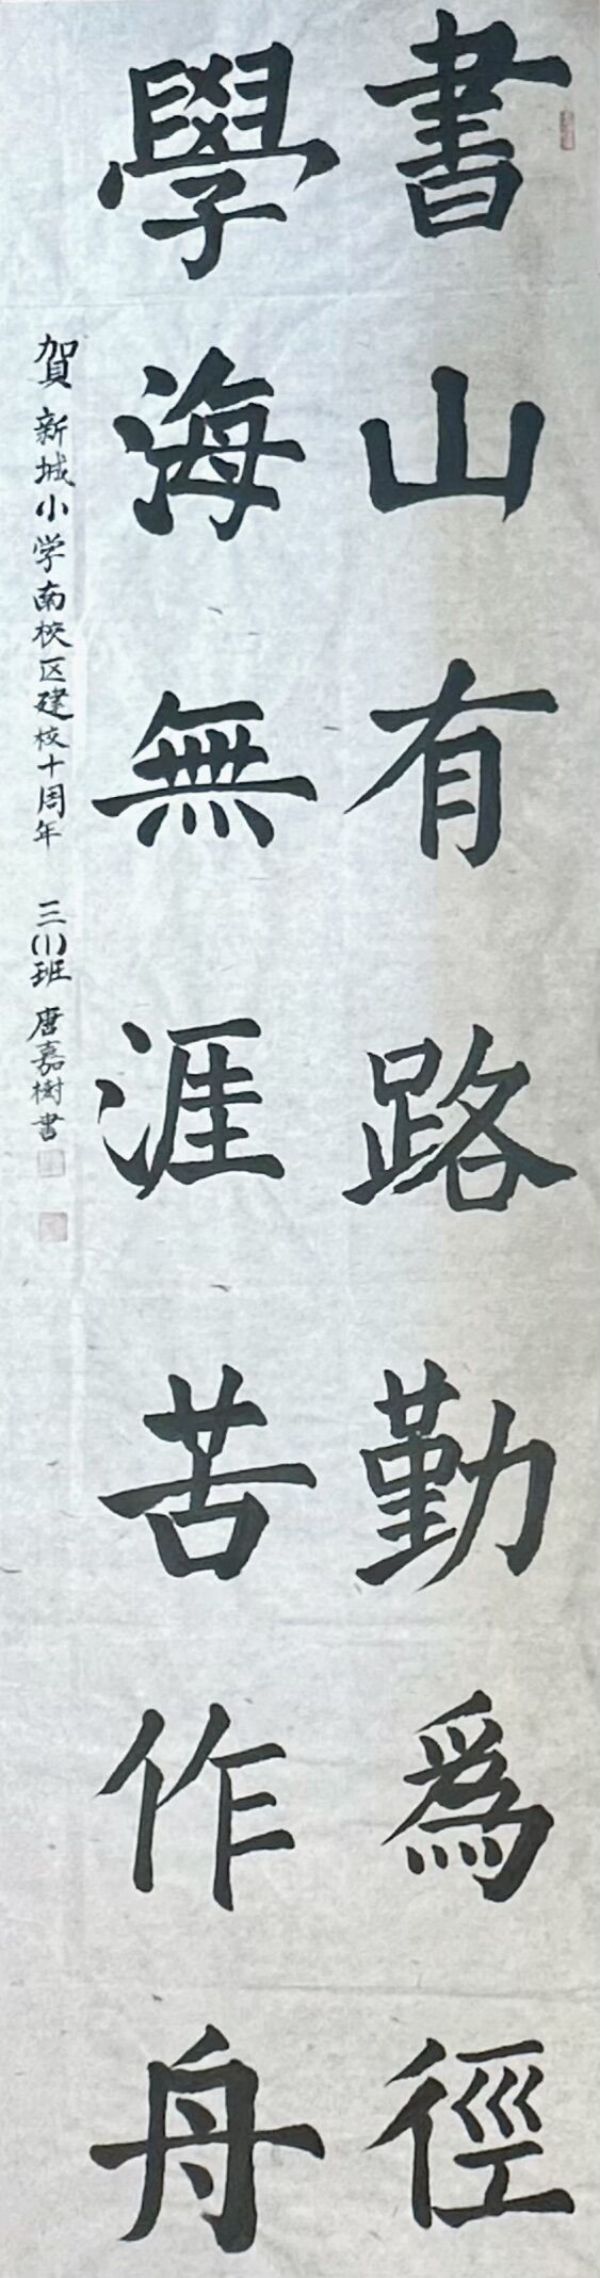 書山有路勤為徑
學海無涯苦作舟
賀新城小学南校区建校十周年 三(1)班 唐嘉樹書